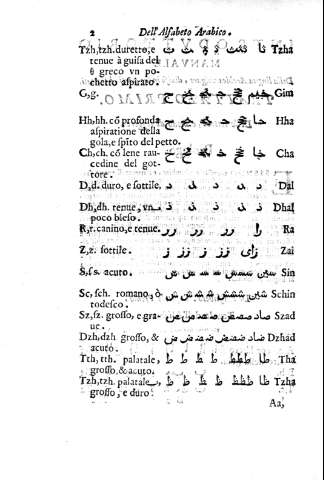 2 Dell'Alfabeto Arabico.
Tzh,tzh. duretto, e ثا Tzha
tenue à guisa del
θ greco vn po-
chetto aspirato.
G,g. جيم ج Gim
Hh,hh. cõ profonda حا ح Hha
aspiratione della
gola, e spĩto del petto.
Ch,ch. cõ lene rau- خا خ Cha
cedine del got-
tore.
D,d. duro, e sottile. د Dal
Dh,dh. tenue, vn ذ Dhal
poco bleso.
R,r. canino, e tenue. را رر رر ر Ra
Z,z. sottile. زاي زز زز ز Zai
S,s. acuto. سين س Sin
Sc, sch. romano, ò شين ش Schin
todesco.
Sz, sz. grosso, e gra- صاد ص Szad
ue.
Dzh, dzh grosso, & ضاد ض Dzhad
acuto.
Tth, tth. palatale, طا ط Tha
grosso, & acuto.
Tzh, tzh. palatale, ظا ظ Tzha
grosso, e duro.
Aa,